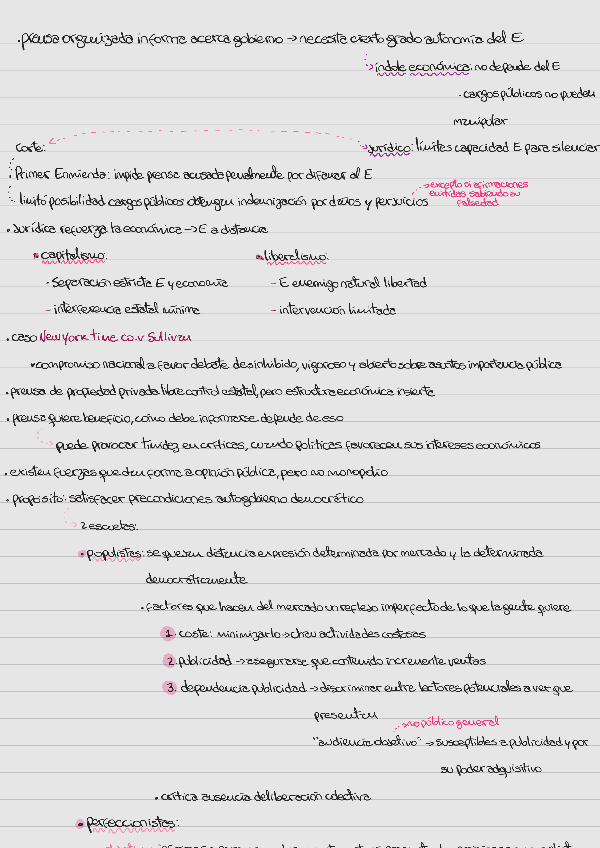 · prensa organizada informa acerca gobierno → necesita cierto grado autonomía del E
índole económica: no depende del E
· cargos públicos no pueden
manipular
Corte:
jurídico: límites capacidad E para silenciar
Primer Enmienda: impide prensa acusada penalmente por difamar al E
excepto si afirmaciones
emitidas sabiendo su
falsedad
limitó posibilidad cargos públicos obtengan indemnización por daños y perjuicios
· Jurídica refuerza la económica → E a distancia
· capitalismo:
· liberalismo:
· Separación estricta E y economía
- E enemigo natural libertad
- interferencia estatal mínima
- intervención limitada
· caso New York time co. v Sullivan
· compromiso nacional a favor debate desinhibido, vigoroso y abierto sobre asuntos importancia pública
· prensa de propiedad privada libre control estatal, pero estructura económica inserta
· prensa quiere beneficio, cómo debe informarse depende de eso
puede provocar timidez en críticas, cuando políticas favorecen sus intereses económicos
· existen fuerzas que dan forma a opinión pública, pero no monopolio
· propósito: satisfacer precondiciones autogobierno democrático
2 escuelas:
· populistas: se quejan distancia expresión determinada por mercado y la determinada
democráticamente
· factores que hacen del mercado un reflejo imperfecto de lo que la gente quiere
1. coste: minimizarlo → chau actividades costosas
2. publicidad → asegurarse que contenido incremente ventas
3. dependencia publicidad → discriminar entre lectores potenciales a ver que
presentan
→ no público general
"audiencia objetivo" → susceptibles a publicidad y por
su poder adquisitivo
· crítica ausencia deliberación colectiva
· perfeccionistas: